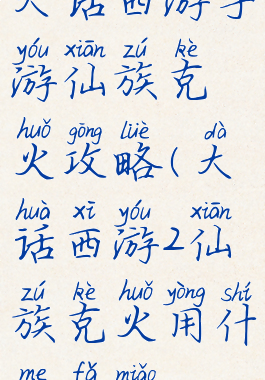 大话西游手
yóu xiān zú kè
游仙族克
huǒ gōng lüè dà
火攻略(大
huà xī yóu xiān
话西游2仙
zú kè huǒ yòng shí
族克火用什
me fǎ miǎo